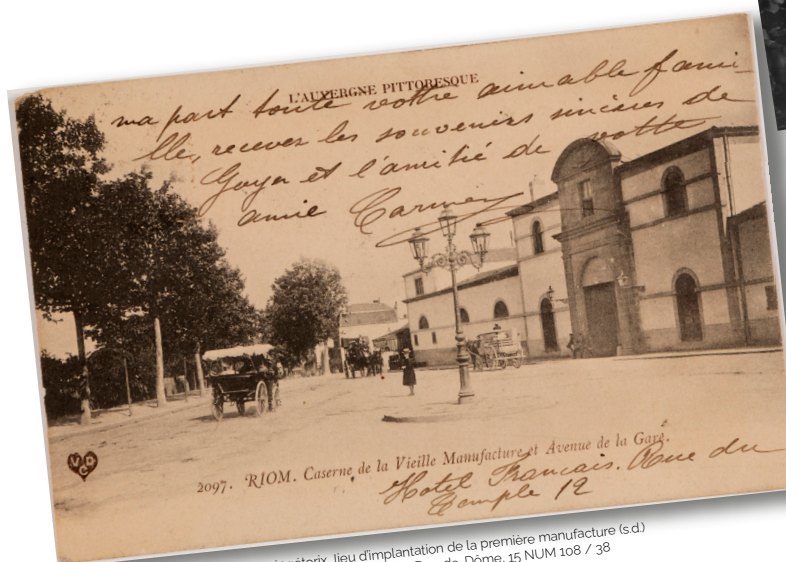 L'AUVERGNE PITTORESQUE
ma part toute votre aimable fami-
lle, recever les souvenirs sincères de
Goya et l'amitié de votte
amie Carmen
VDC
2097. RIOM. Caserne de la Vieille Manufacture et Avenue de la Gare.
Hotel Francais. Rue du
Temple 12
lieu d'implantation de la première manufacture (s.d.)
Dôme, 15 NUM 108 / 38